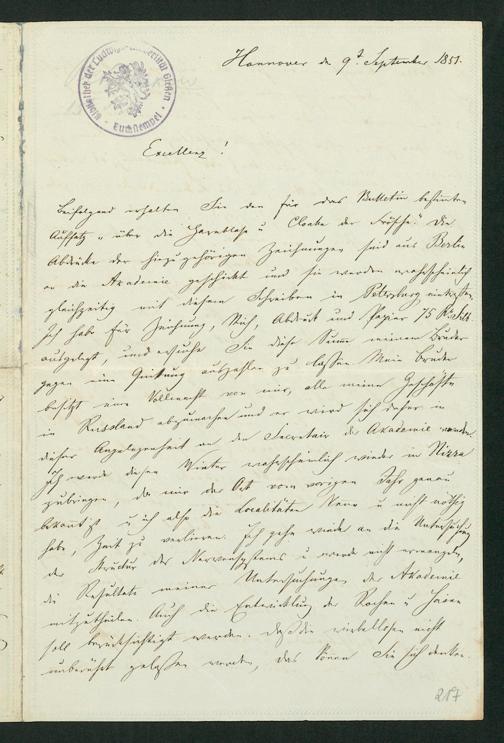 Hannover d. 9t September 1851.
Bibliothek der Ludwigs-Universität Gießen
Buchstempel
Excellenz!
Beifolgend erhalten Sie den für das Bulletin bestimmten
Aufsatz „über die Harnblase u Cloake der Frösche". Die
Abdrücke der hinzugehörigen Zeichnungen sind aus Berlin
an die Akademie geschickt und sie werden wahrscheinlich
gleichzeitig mit diesem Schreiben in Petersburg eintreffen.
Ich habe für Zeichnung, Stich, Abdruck und Papier 75
ausgelegt, und ersuche Sie diese Summe meinem Bruder
gegen eine Quittung auszahlen zu lassen. Mein Bruder
besitzt eine Vollmacht von mir, alle meine Geschäfte
in Russland abzumachen und er wird sich daher in
dieser Angelegenheit an den Secretair der Akademie wenden.
Ich werde diesen Winter wahrscheinlich wieder in Nizza
zubringen, da mir der Ort vom vorigen Jahr genau
bekannt ist u ich also die Localitäten kenne u nicht nöthig
habe, Zeit zu verlieren. Ich gehe wieder an die Untersuchung
der Structur des Nervensystems u werde nicht ermangeln,
die Resultate meiner Untersuchungen der Akademie
mitzutheilen. Auch die Entwicklung der Rochen u Haien
soll berücksichtigt werden. Daß die wirbellosen nicht
unberührt gelassen werden, das können Sie sich denken.
217